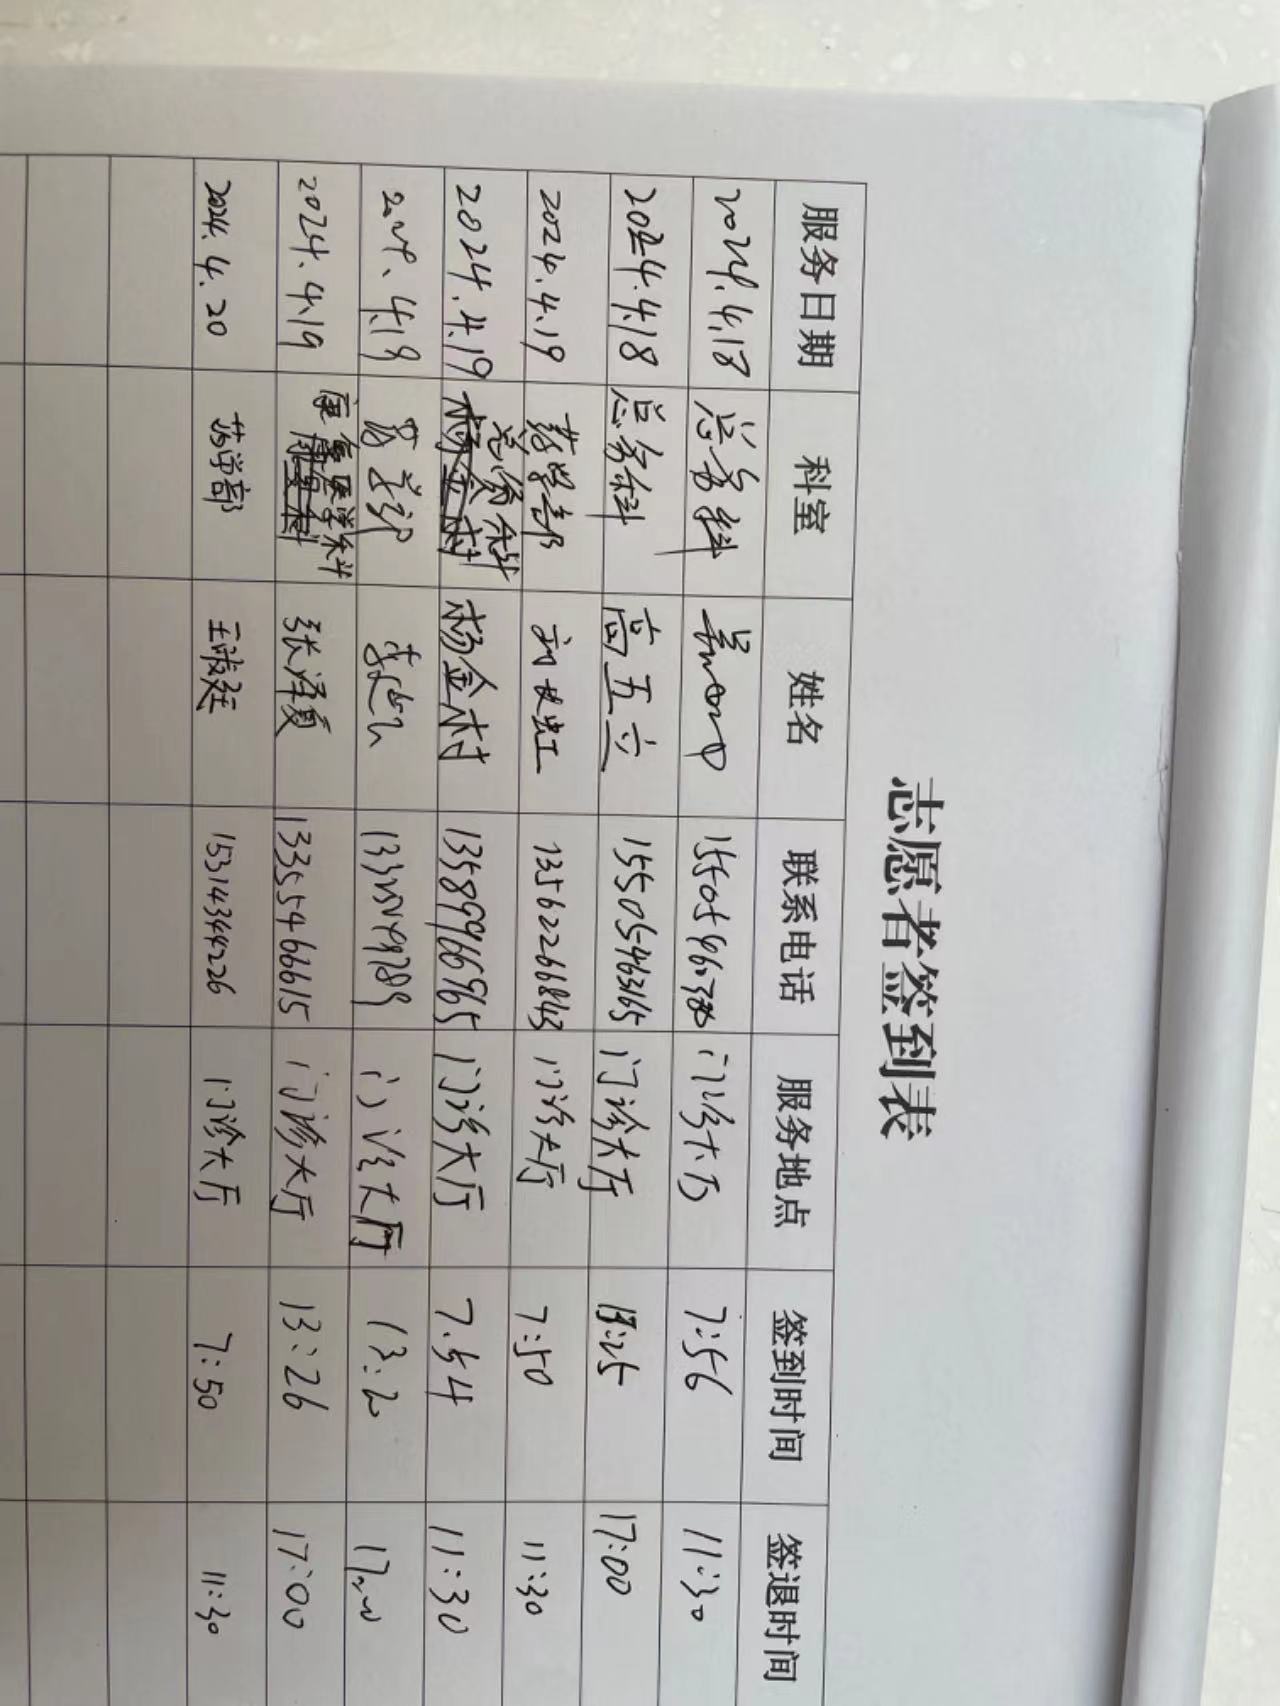 志愿者签到表
服务日期 科室 姓名 联系电话 服务地点 签到时间 签退时间
2024.4.18 总务科 门诊大厅 7:56 11:30
2024.4.18 总务科 高五立 15505463165 门诊大厅 13:25 17:00
2024.4.19 药学部 13562266843 门诊大厅 7:50 11:30
2024.4.19 总务科 杨金村 13589996965 门诊大厅 7.54 11:30
2024、4.19 门诊大厅 13:20 17:00
2024.4.19 康复医学科 张泽夏 13355466615 门诊大厅 13:26 17:00
2024.4.20 药学部 15314344226 门诊大厅 7:50 11:30